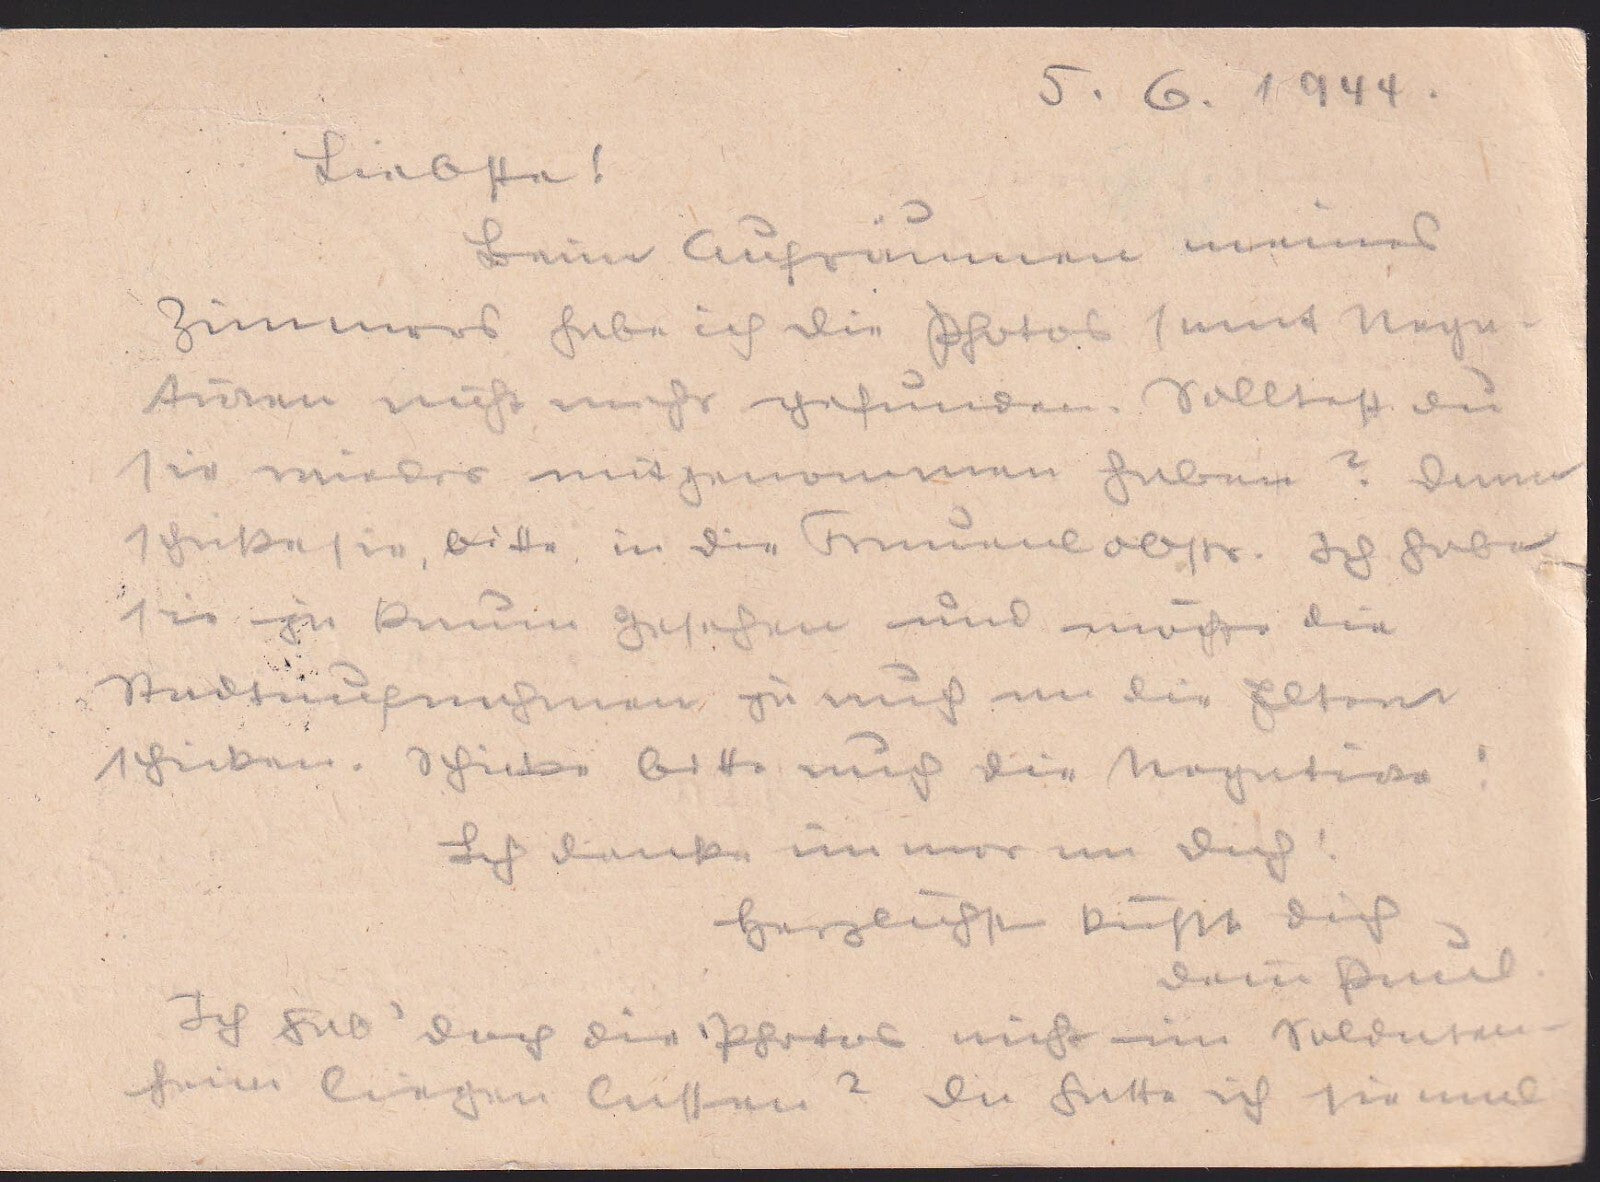 5. 6. 1944.
Liebste!
Beim Aufräumen meines
Zimmers habe ich die Photos samt Nega-
tiven nicht mehr gefunden. Solltest du
sie wieder mitgenommen haben? Dann
schicke sie, bitte, in die Frauenlobstr. Ich habe
sie ja kaum gesehen und möchte die
Stadtaufnahmen ja auch an die Eltern
schicken. Schicke bitte auch die Negative!
Ich denke immer an dich!
Herzlichst küsst dich
dein Paul.
Ich hab' doch die Photos nicht im Soldaten-
heim liegen lassen? Da hatte ich sie mal